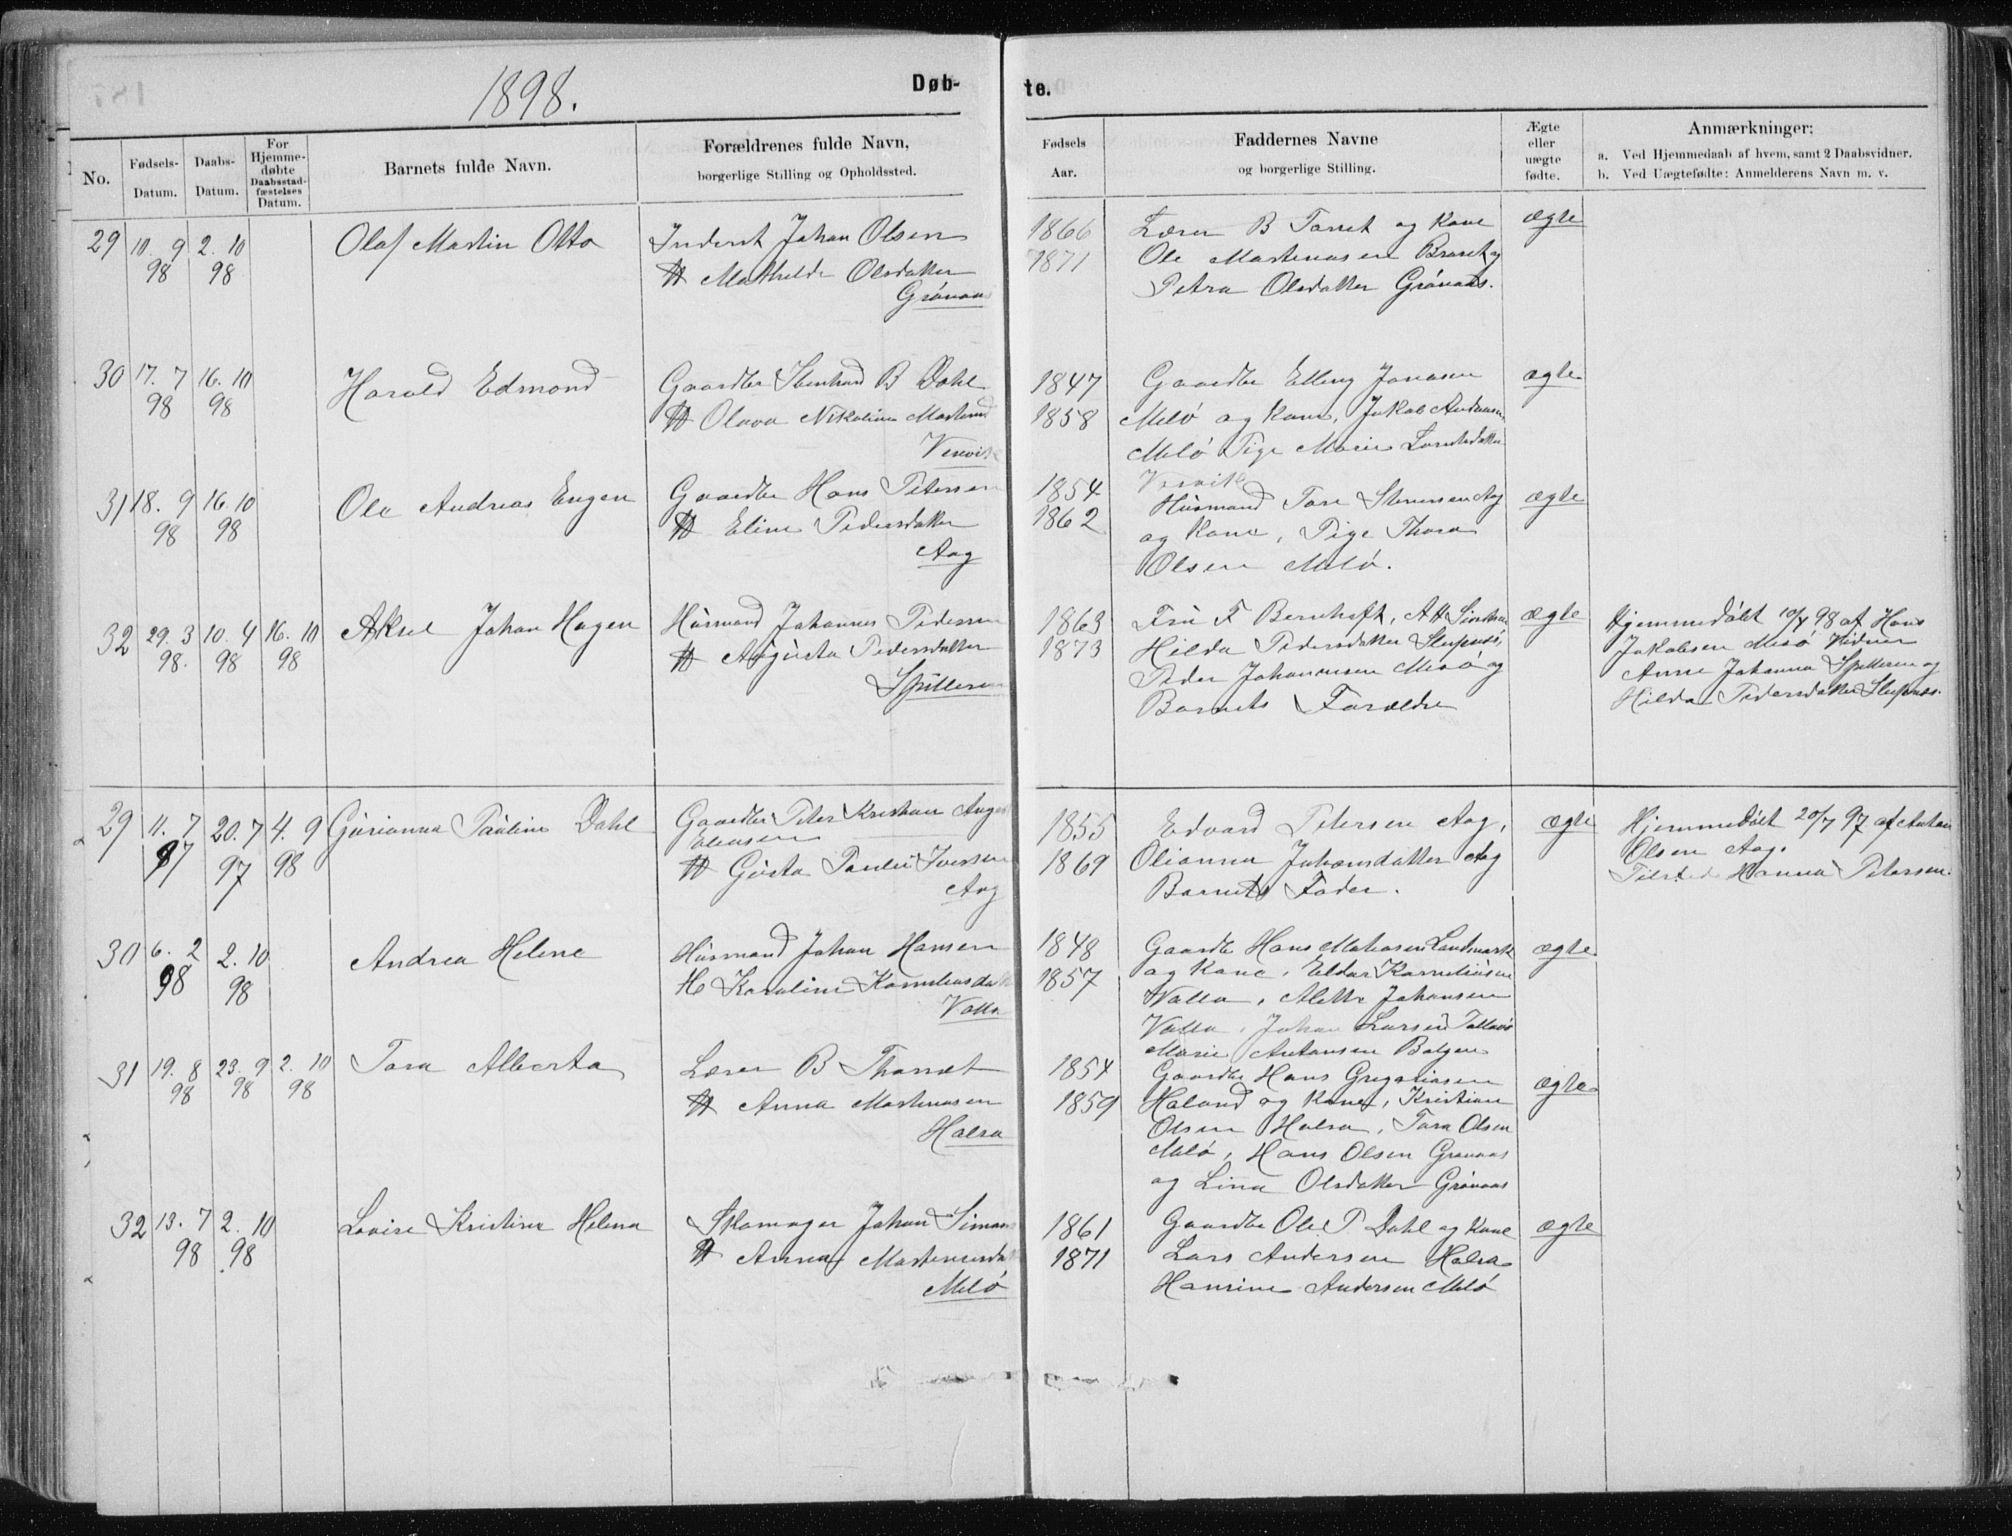 1898.
Døb-
te.
No.
Fødsels-
Datum.
Daabs-
Datum.
For
Hjemme-
døbte
Daabsstad-
fæstelses
Datum.
Barnets fulde Navn.
Forældrenes fulde Navn,
borgerlige Stilling og Opholdssted.
Fødsels
Aar.
Faddernes Navne
og borgerlige Stilling.
Ægte
eller
uægte
fødte.
Anmærkninger:
a. Ved Hjemmedaab af hvem, samt 2 Daabsvidner.
b. Ved Uægtefødte: Anmelderens Navn m. v.
29
10. 9
98
2. 10
98
Olaf Martin Otto
Inderst Johan Olsen
H Mathilde Olsdatter
Grønaas
1866
1871
Lærer B Torret og Kone
Ole Martinussen
Petra Olsdatter Grønaas.
ægte
30
17. 7
98
16. 10
98
Harald Edmond
Gaardbr B Dahl
H Olava Nikoline
1847
1858
Gaardbr Elling Jonasen
Melø og Kone, Jakob
Melø Pige Marie
ægte
31
18. 9
98
16. 10
98
Ole Andreas Eugen
Gaardbr Hans Petersen
H Eline Pedersdatter
Aag
1854
1862
Husmand Tore Aag
og Kone, Pige Thora
Olsen Melø.
ægte
32
29. 3
98.
10. 4
98
16. 10
98
Aksel Johan Hagen
Husmand Johannes Pedersen
H Augusta Pedersdatter
1863
1873
Fru F Bernhoft,
Hilda Pedersdatter
Peder Johannesen og
Barnets Forældre
ægte
Hjemmedøbt 10/4 98 af Hans
Jakobsen
Anne Johanna og
Hilda Pedersdatter
29
11. 7
97
20. 7
97
4. 9
98
Gurianna Pauline Dahl
Gaardbr Peter Kristian
H Gusta Iversen
Aag
1855
1869
Edvard Petersen Aag,
Olianna Johansdatter Aag
Barnets Fader.
ægte
Hjemmedøbt 20/7 97 af Anton
Olsen Aag.
Hanna Petersen.
30
6. 2
98
2. 10
98
Andrea Helene
Husmand Johan Hansen
H Karoline
Valla
1848
1857
Gaardbr Hans
og Kone, Eldar Korneliusen
Valla, Alette Johansen
Valla, Johan Larsen
Marie Antonsen Bolgen
ægte
31
19. 8
98
23. 9
98
2. 10
98
Tora Alberta
Lærer B
H Anna Martinusen
Halsa
1854
1859
Gaardbr Hans
Haland og Kone, Kristian
Olsen Halsa, Tora Olsen
Melø, Hans Olsen Grønaas
og Lina Olsdatter Grønaas
ægte
32
13. 7
98
2. 10
98
Lovise Kristine Helena
Skomager Johan
H Anna
Melø
1861
1871
Gaardbr Ole P Dahl og Kone
Lars Andersen Halsa
Hansine Andersen Melø
ægte